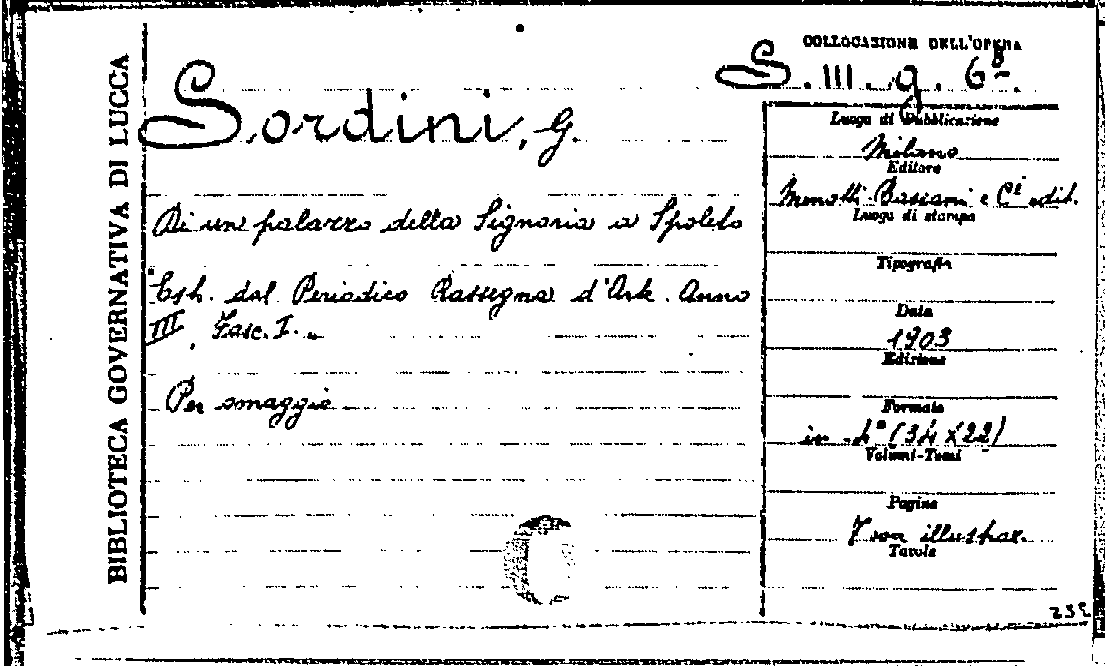 BIBLIOTECA GOVERNATIVA DI LUCCA
COLLOCAZIONE DELL'OPERA
S. III. g. 6
Sordini, G.
Di un palazzo della Signoria a Spoleto
Estr. dal Periodico Rassegna d'Arte. Anno
III, Fasc. I.
Per omaggio
Luogo di Pubblicazione
Milano
Editore
Menotti-Bassani e Ci edit.
Luogo di stampa
Tipografia
Data
1903
Edizione
Formato
in -4° (34 x 22)
Volumi-Tomi
Pagine
7 con illustraz.
Tavole